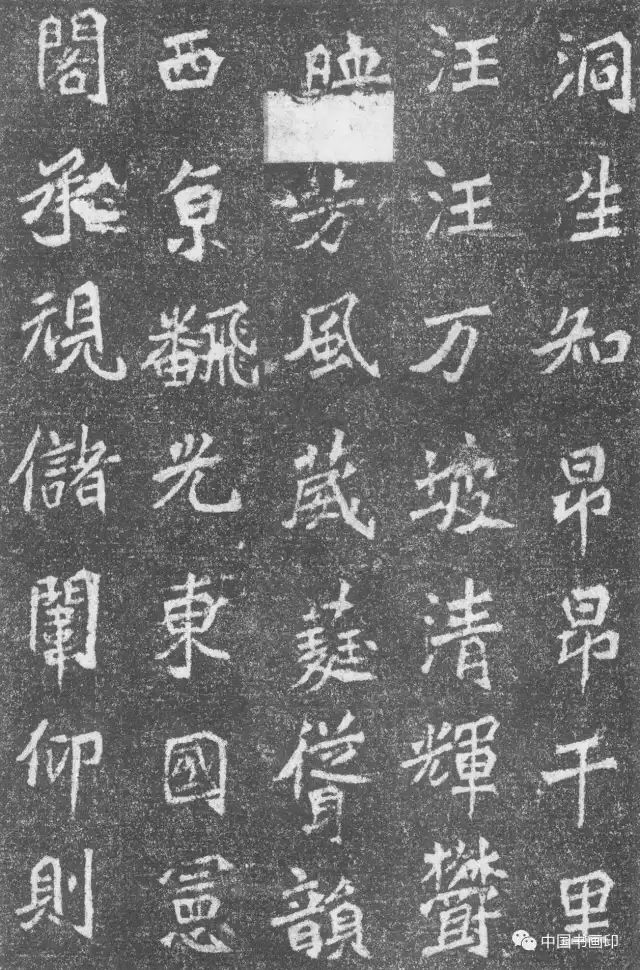 洞生知昂昂千里
汪汪万坡清輝欝
映芳風葳蕤聳韻
西京飜光東國憲
閣承視儲闈仰則
中国书画印